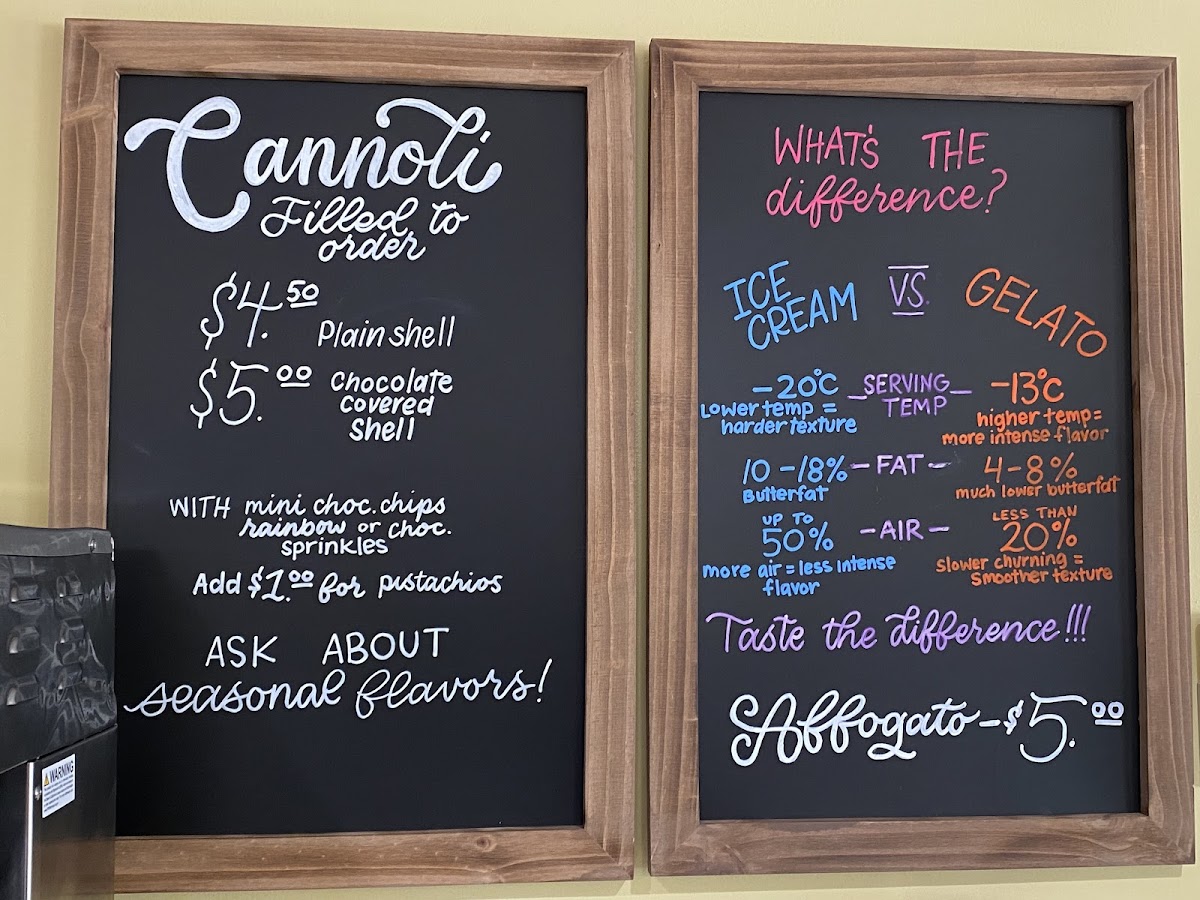 Cannoli
Filled to
order
$4.50 Plain shell
$5.00 Chocolate
covered
shell
WITH mini choc. chips
rainbow or choc.
sprinkles
Add $1.00 for pistachios
ASK ABOUT
seasonal flavors!
WARNING
WHAT'S THE
difference?
ICE
CREAM
VS.
GELATO
-20°C
Lower temp =
harder texture
SERVING
TEMP
-13°C
higher temp=
more intense flavor
10-18%
Butterfat
-FAT-
4-8%
much lower butterfat
UP TO
50%
more air = less intense
flavor
-AIR-
LESS THAN
20%
Slower churning =
Smoother texture
Taste the difference!!!
Affogato-$5.00